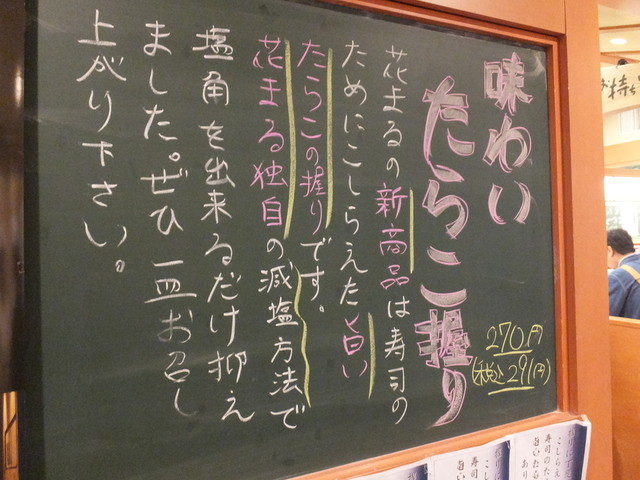 味わい
たらこ握り
270円
(税込291円)
花まるの新商品は寿司の
ためにこしらえた旨い
たらこの握りです。
花まる独自の減塩方法で
塩角を出来るだけ抑え
ました。ぜひ一皿お召し
上がり下さい。
お持ち